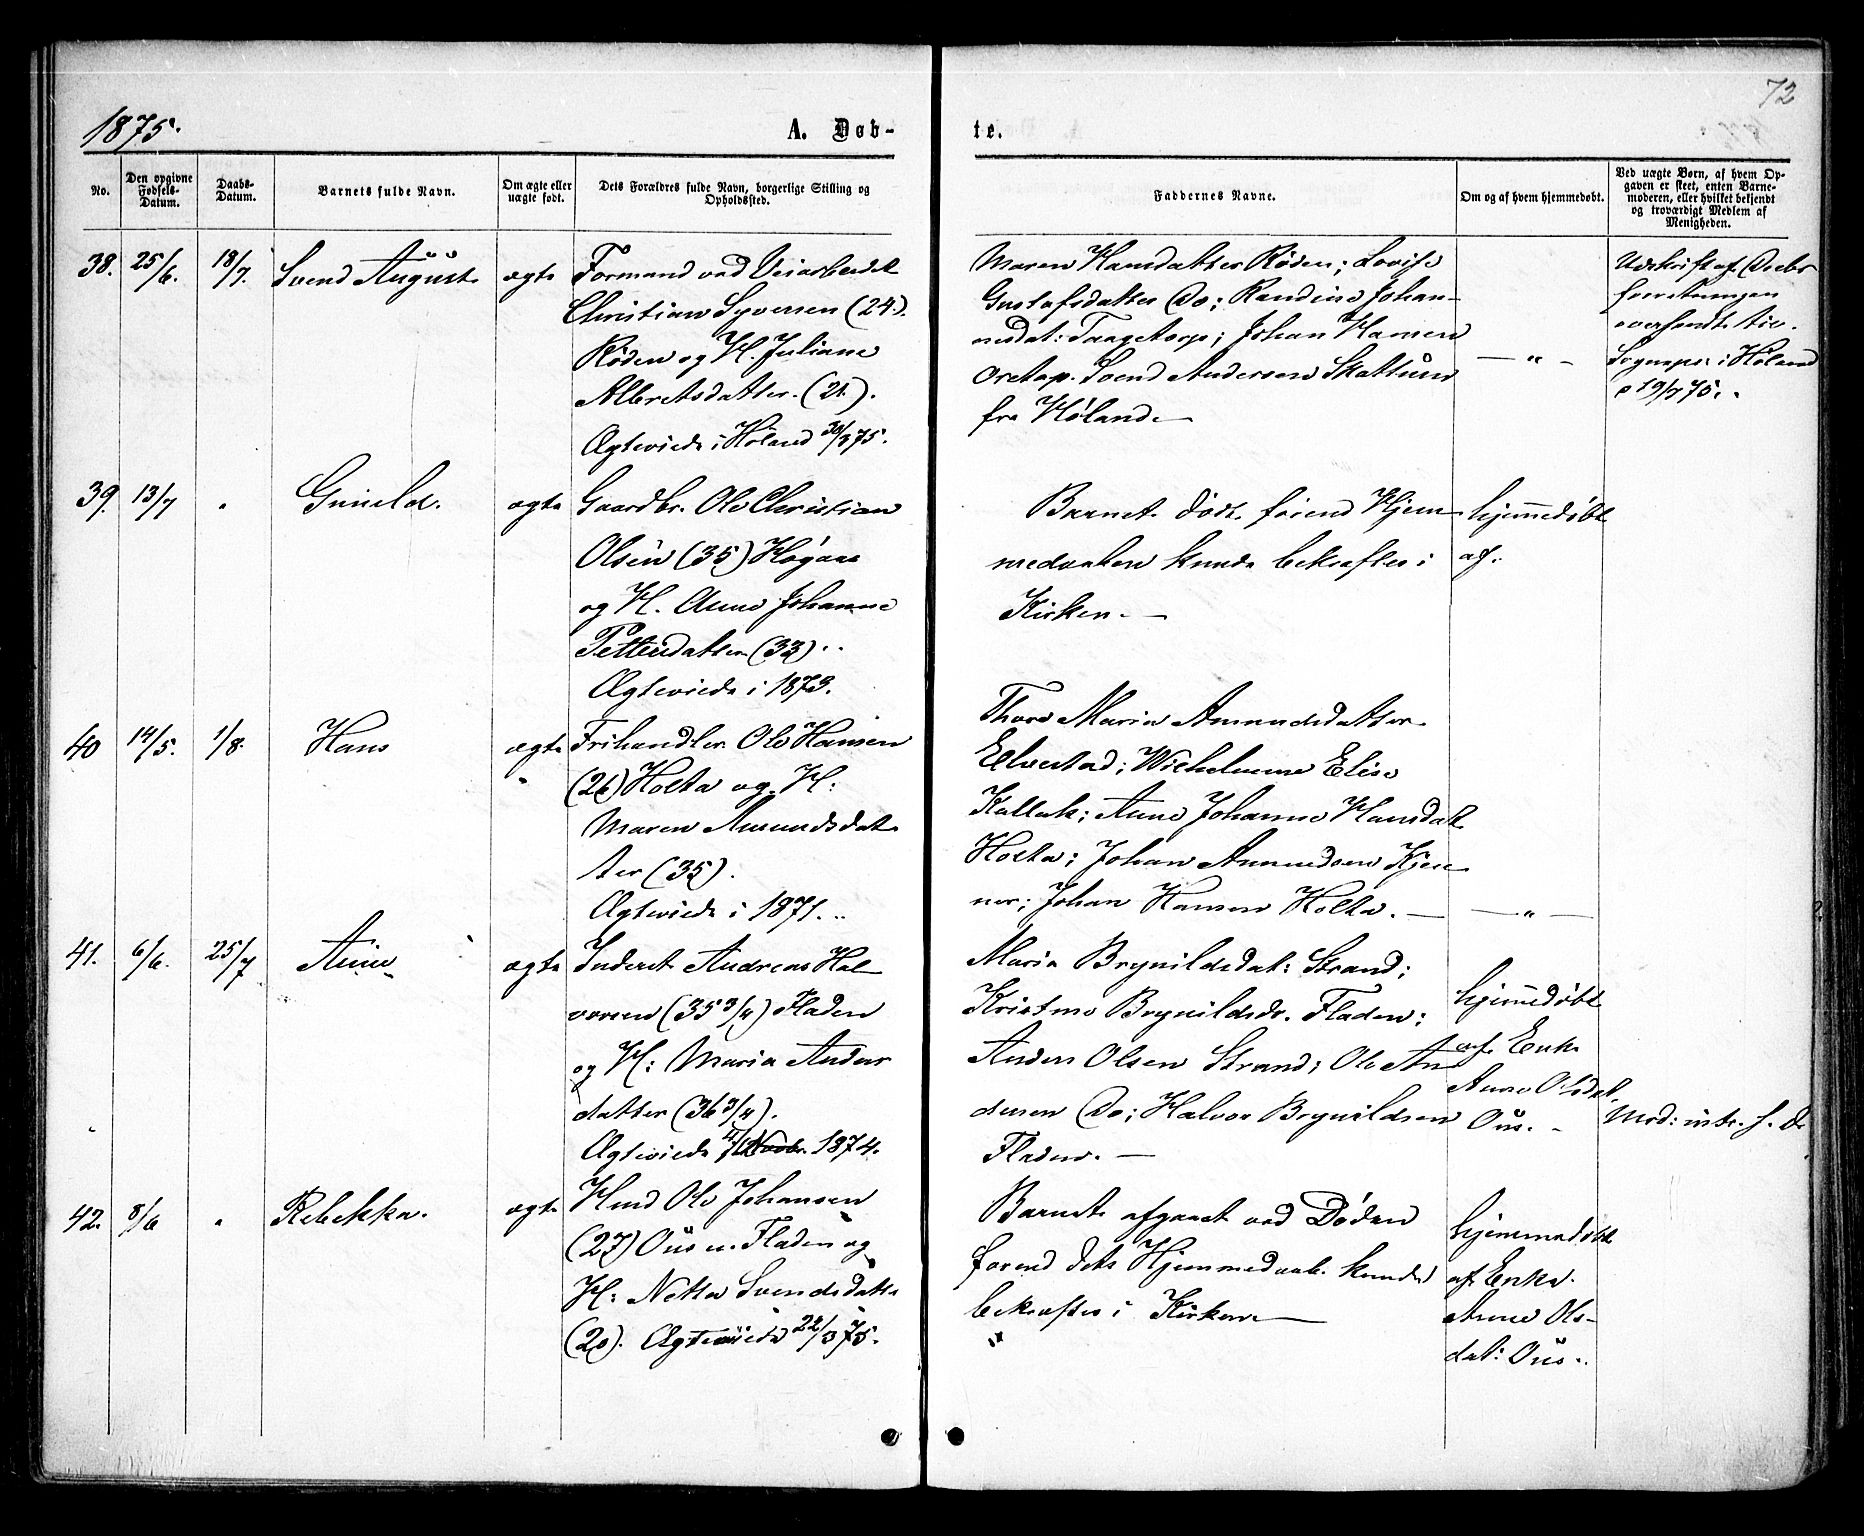 72
1875.
A. Døb-
te.
No.
Den opgivne Fødsels-Datum.
Daabs-Datum.
Barnets fulde Navn.
Om ægte eller uægte født.
Dets Forældres fulde Navn, borgerlige Stilling og Opholdssted.
Faddernes Navne.
Om og af hvem hjemmedøbt.
Ved uægte Børn, af hvem Op-
gaven er skeet, enten Barne-
moderen, eller hvilket bekjendt
og troværdigt Medlem af
Menigheden.
38. 25/6. 18/7. Svend August ægte
Formand ved Veiarbeidet
Christian Syversen (24).
Röden og H. Juliane
Albretsdatter. (21).
Ægteviede i Höland 30/3 75.
Maren Hansdatter Röden; Lovise
Gustafsdatter Do; Randine Johan-
nesdat: Taagetorp; Johan Hansen
Svend Andersen Skattum
fra Höland. —
— " —
Udskrift af Daabs
forretningen
oversendt til
Sognepr. i Höland
19/7 75.
39. 13/7 " ægte
Gaardbr. Ole Christian
Olsen (35)
og H. Anne Johanne
Pettersdatter (33)
Ægteviede i 1873.
Barnet döde förend Hjem-
medaaben kunde bekræftes i
Kirken. —
hjemmedöbt
af.
40 14/5. 1/8. Hans ægte
Frihandler Ole Hansen
(26) Holta og H:
Maren Amundsdat-
ter (35).
Ægteviede i 1871.
Thora Maria Amundsdatter
Elvestad; Wilhelmine Elise
Kallak; Anne Johanne Hansdat
Holta; Johan Amundsen Kjen-
ner; Johan Hansen Holta. —
— " —
41. 6/6. 25/7 Anne ægte
Inderst Andreas Hal-
vorsen (35 3/4) Fladen
og H: Maria Anders
datter (36 3/4).
Ægteviede Novbr. 1874.
Maria Brynildsdat: Strand;
Kristine Brynildsdr. Fladen;
Anders Olsen Strand; Ole An-
dersen Do; Halvor Brynildsen
Fladen. —
hjemmedöbt
af Enke
Anne Olsdat.
Ous.
Mod: intr. s. D.
42. 8/6 " Rebekka. ægte
Hmd Ole Johansen
(27) Ous u. Fladen og
H: Netta Svendsdatt
(20). Ægteviede 22/3 75.
Barnet afgaaet ved Döden
forend dets Hjemmedaab kunde
bekræftes i Kirken —
hjemmedöbt
af Enke
Anne Ols-
dat: Ous.